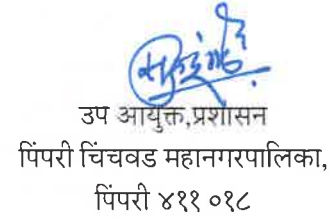 उप आयुक्त,प्रशासन
पिंपरी चिंचवड महानगरपालिका,
पिंपरी ४११ ०१८